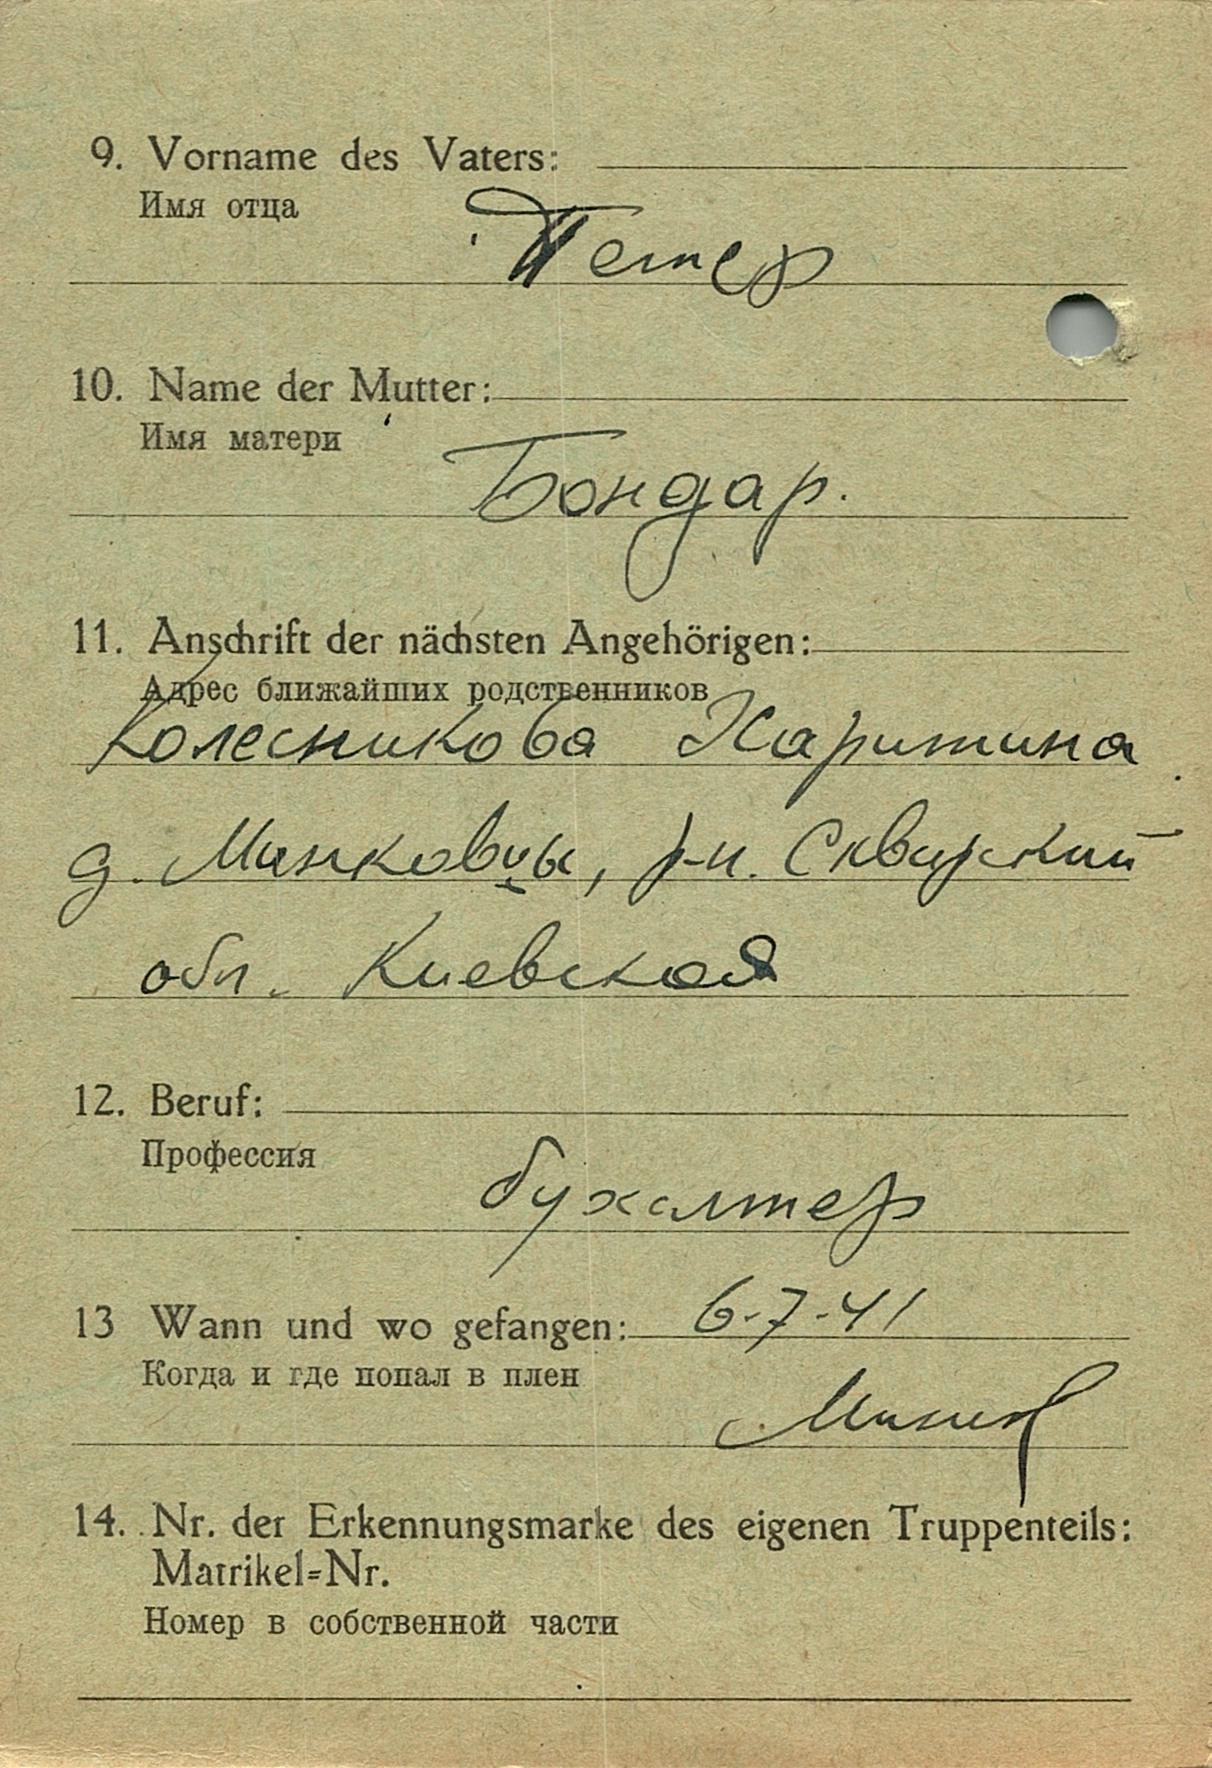 9. Vorname des Vaters:
Имя отца
Петер
10. Name der Mutter:
Имя матери
Бондар.
11. Anschrift der nächsten Angehörigen:
Адрес ближайших родственников
Колесникова Харитина
д. Минковцы, р-н. Сквирский
обл. Киевская
12. Beruf:
Профессия
бухалтер
13 Wann und wo gefangen: 6-7-41
Когда и где попал в плен
14. Nr. der Erkennungsmarke des eigenen Truppenteils:
Matrikel=Nr.
Номер в собственной части